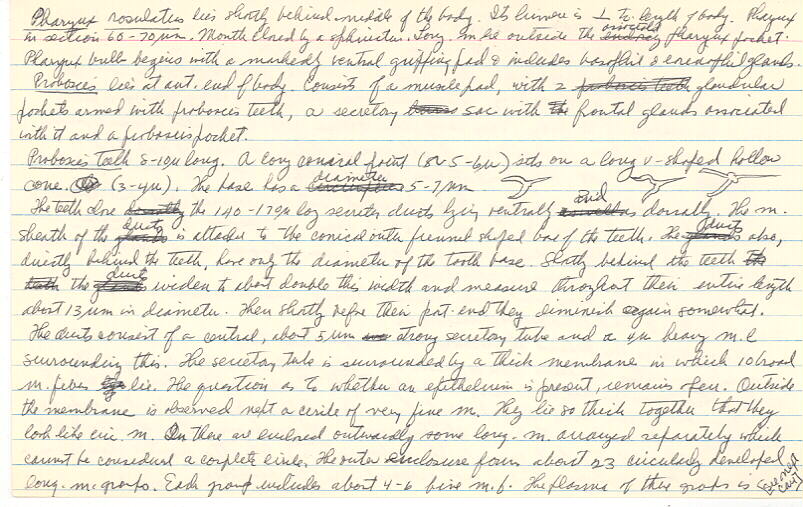 Pharynx rosulatus lies shortly behind middle of the body. Its lumen is ⊥ to length of body. Pharynx
in section 60-70 µm. Mouth closed by a sphincter. Long. m lie outside the associated pharynx pocket.
Pharynx bulb begins with a markedly ventral gripping pad & includes basophil & eosinophil glands.
Proboscis lies at ant. end of body. Consists of a muscle pad, with 2 glandular
pockets armed with proboscis teeth, a secretory sac with frontal glands associated
with it and a proboscis pocket.
Proboscis Teeth 8-10µ long. A long conical point ( 5-6µ) sits on a long v-shaped hollow
cone. (3-4µ). The base has a diameter 5-7µm
The teeth close the 140-179µ long secretory ducts lying ventrally and dorsally. The m.
sheath of the ducts is attached to the conical outer funnel shaped base of the teeth. The ducts also,
directly behind the teeth, have only the diameter of the tooth base. Shortly behind the teeth
the ducts widen to about double this width and measure throughout their entire length
about 13µm in diameter. Then shortly before their post. end they diminish again somewhat.
The ducts consist of a central, about 5µm strong secretory tube and a 4µ heavy m. l
surrounding this. The secretory tube is surrounded by a thick membrane in which 10 broad
m. fibers lie. The question as to whether an epithelium is present, remains open. Outside
the membrane is observed next a circle of very fine m. They lie so thick together that they
look like circ. m. In there are enclosed outwardly some long. m. arranged separately which
cannot be considered a complete circle. The outer enclosure forms about 23 circularly developed
long. m. groups. Each group includes about 4-6 fine m.f. The plasma of these groups is [see next card]